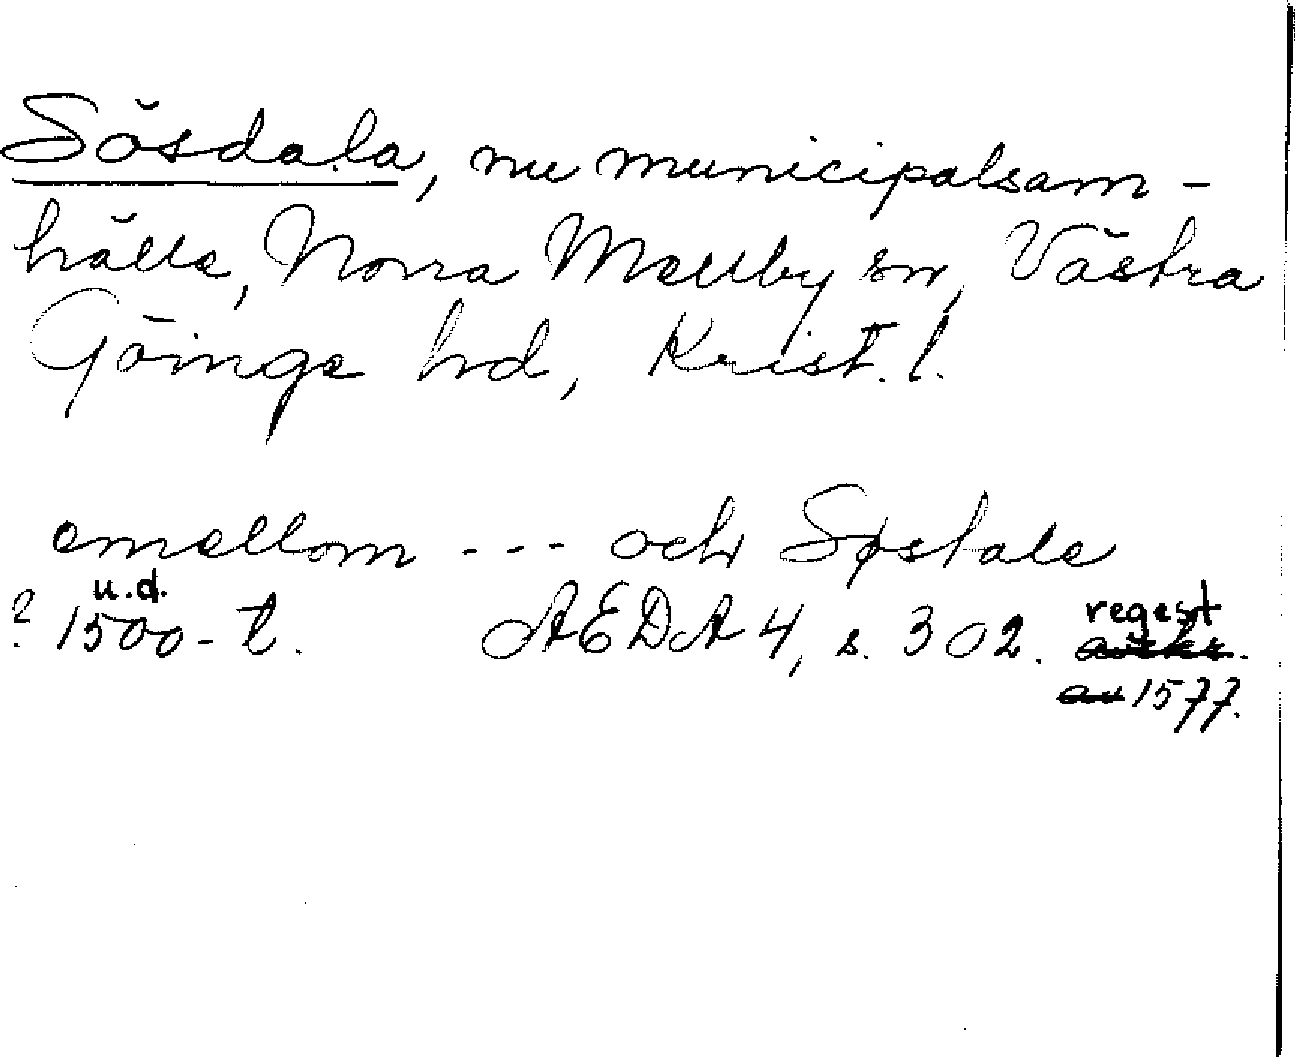 Sösdala, nu municipalsam-
hälle, Norra Mellby sn, Västra
Göinge hd, Krist. l.
emellom --- och Søstale
u.d.
? 1500-t. AEDA 4, s. 302. regest
avskr.
av 1577.